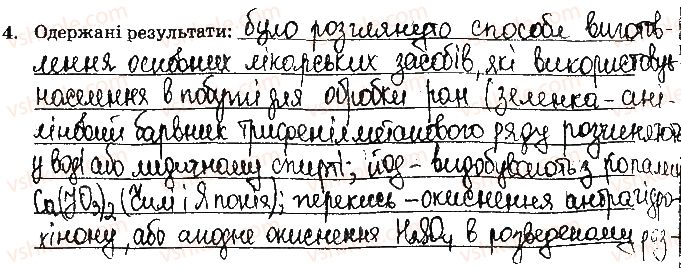 4. Одержані результати: було розглянуто способи виготов-
лення основних лікарських засобів, які використовує
населення в побуті для обробки ран (зеленка - ані-
ліновий барвник трифенілметанового ряду розчиняють
у воді або медичному спирті; йод - видобувають з копалин
Ca(JO₃)₂ (Чилі і Японія); перекись - окиснення антрагідро-
хінону, або анодне окиснення H₂SO₄ в розведеному роз-